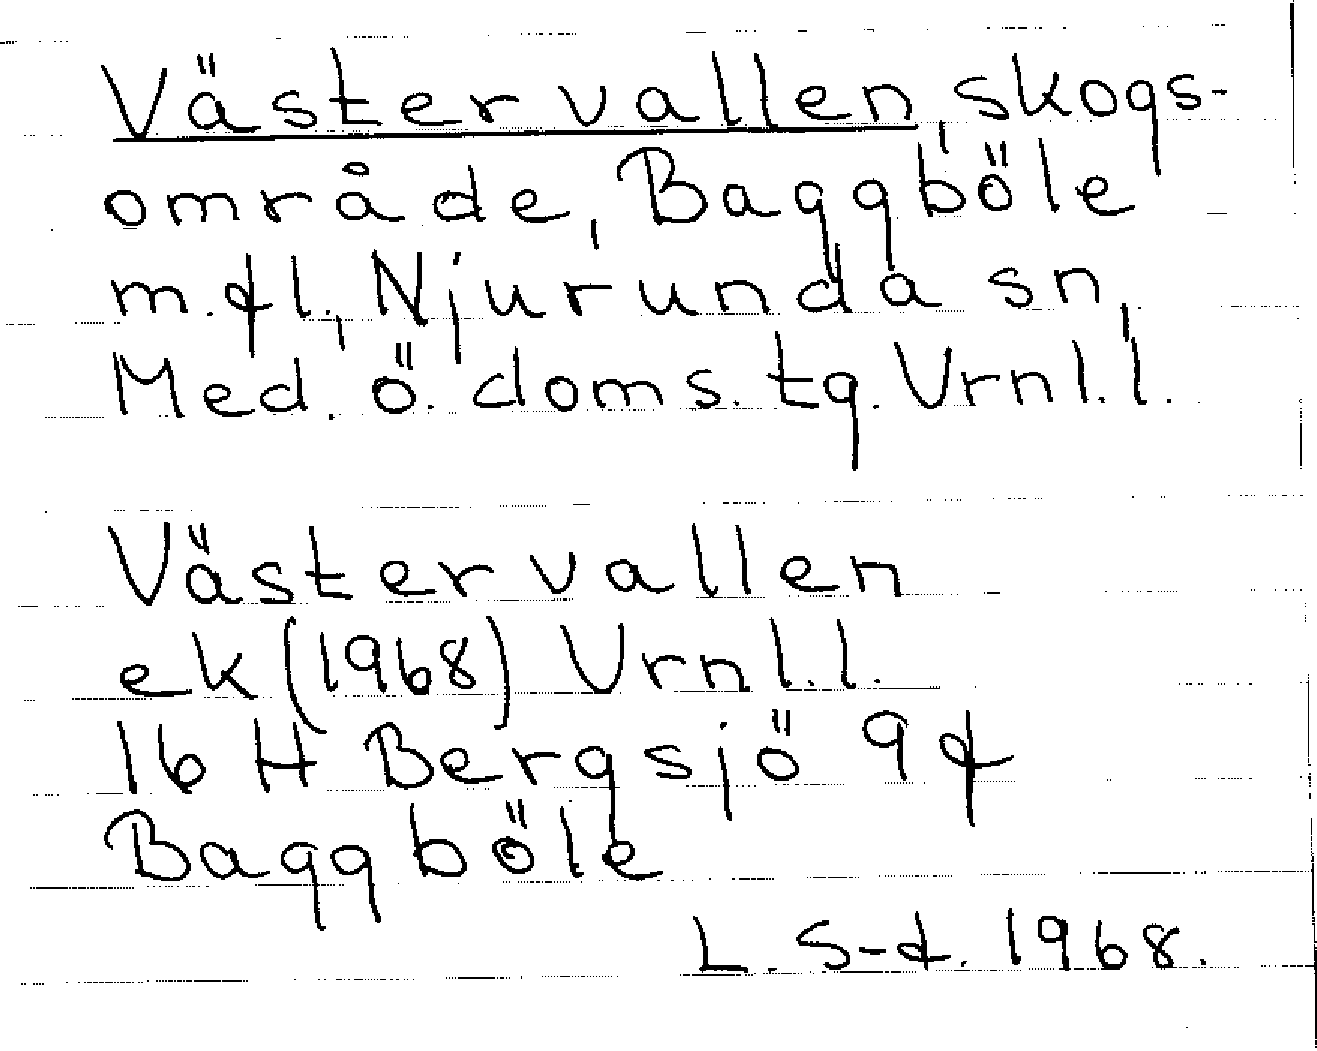 Västervallen, skogs-
område, Baggböle
m.fl., Njurunda sn,
Med. ö. doms. tg. Vrnl.l.
Västervallen
ek (1968) Vrnl.l.
16 H Bergsjö 9f
Baggböle
L. S-d. 1968.